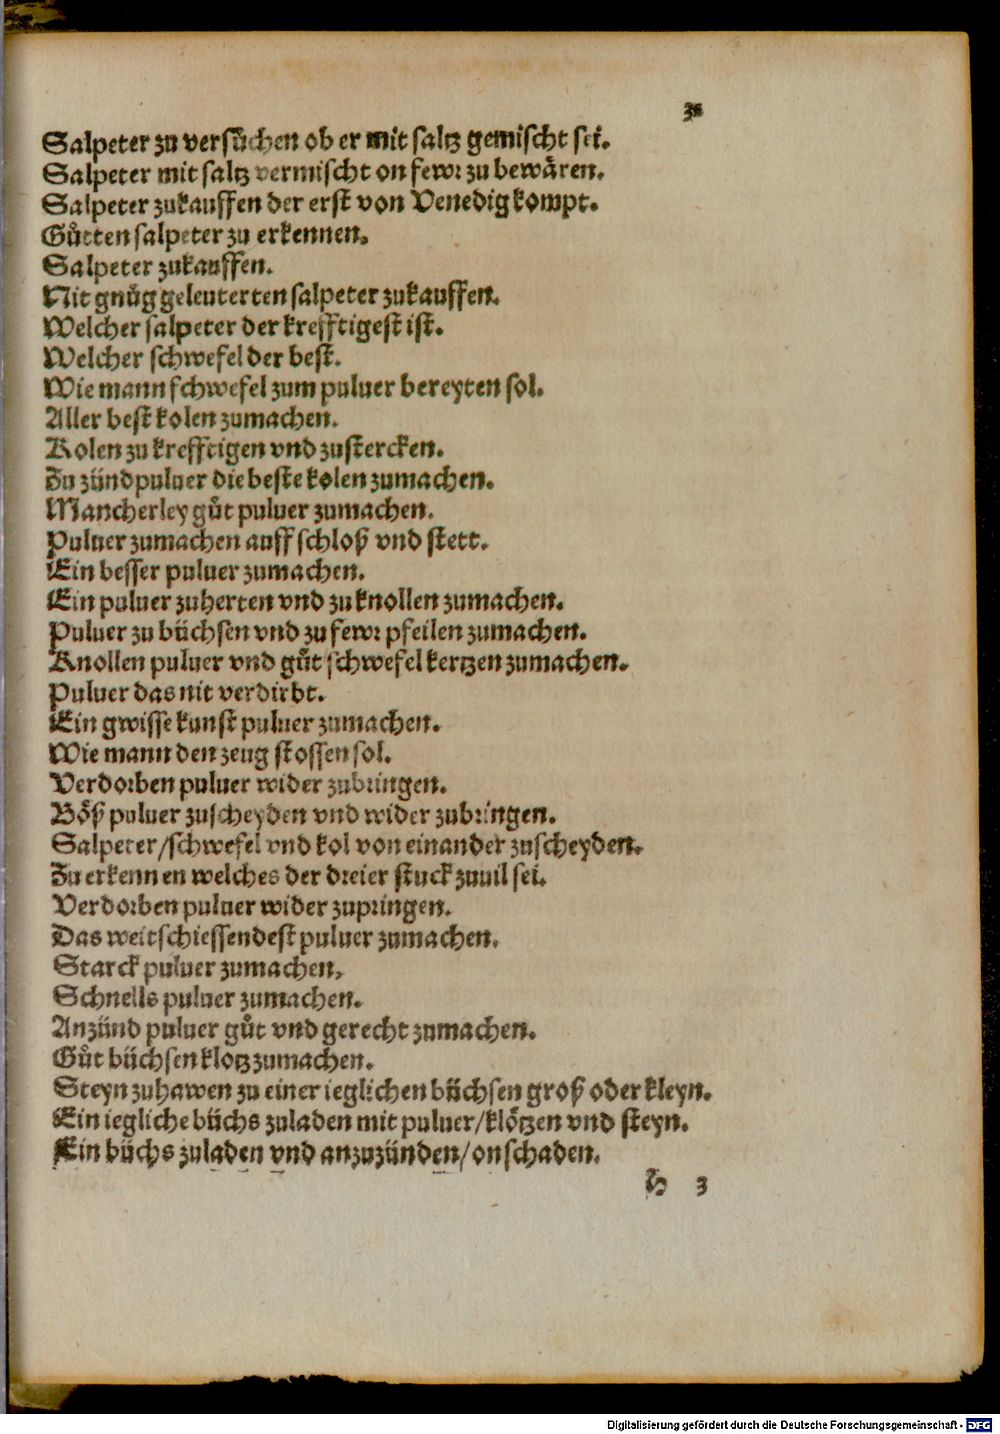 31
Salpeter zu versuͦchen ob er mit saltz gemischt sei.
Salpeter mit saltz vermischt on fewr zu bewaͤren.
Salpeter zukauffen der erst von Venedig kompt.
Guͦtten salpeter zu erkennen.
Salpeter zukauffen.
Nit gnuͦg geleuterten salpeter zukauffen.
Welcher salpeter der krefftigest ist.
Welcher schwefel der best.
Wie mann schwefel zum puluer bereyten sol.
Aller best kolen zumachen.
Kolen zu krefftigen vnd zustercken.
Zu zündpuluer die beste kolen zumachen.
Mancherley guͦt puluer zumachen.
Puluer zumachen auff schloß vnd stett.
Ein besser puluer zumachen.
Ein puluer zuherten vnd zu knollen zumachen.
Puluer zu büchsen vnd zu fewr pfeilen zumachen.
Knollen puluer vnd guͦt schwefel kertzen zumachen.
Puluer das nit verdirbt.
Ein gwisse kunst puluer zumachen.
Wie mann den zeug stossen sol.
Verdorben puluer wider zubringen.
Boͤß puluer zuscheyden vnd wider zubringen.
Salpeter/schwefel vnd kol von einander zuscheyden.
Zu erkennen welches der dreier stuck zuuil sei.
Verdorben puluer wider zupringen.
Das weitschiessendest puluer zumachen.
Starck puluer zumachen,
Schnells puluer zumachen.
Anzünd puluer guͦt vnd gerecht zumachen.
Guͦt büchsen klotz zumachen.
Steyn zuhawen zu einer ieglichen büchsen groß oder kleyn.
Ein iegliche büchs zuladen mit puluer/kloͤtzen vnd steyn.
Ein büchs zuladen vnd anzuzünden/on schaden.
3
Digitalisierung gefördert durch die Deutsche Forschungsgemeinschaft - DFG